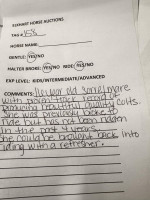 ELKHART HORSE AUCTIONS
TAG #
HORSE NAME:
GENTLE: YES/NO
HALTER BROKE: YES/NO RIDE: YES/NO
EXP LEVEL: KIDS/INTERMEDIATE/ADVANCED
COMMENTS: 16 yr old sorrel mare
with proven track record of
producing beautiful quality colts.
She was previously broke to
ride but has not been ridden
in the past 4 years.
She could be brought back into
riding with a refresher.